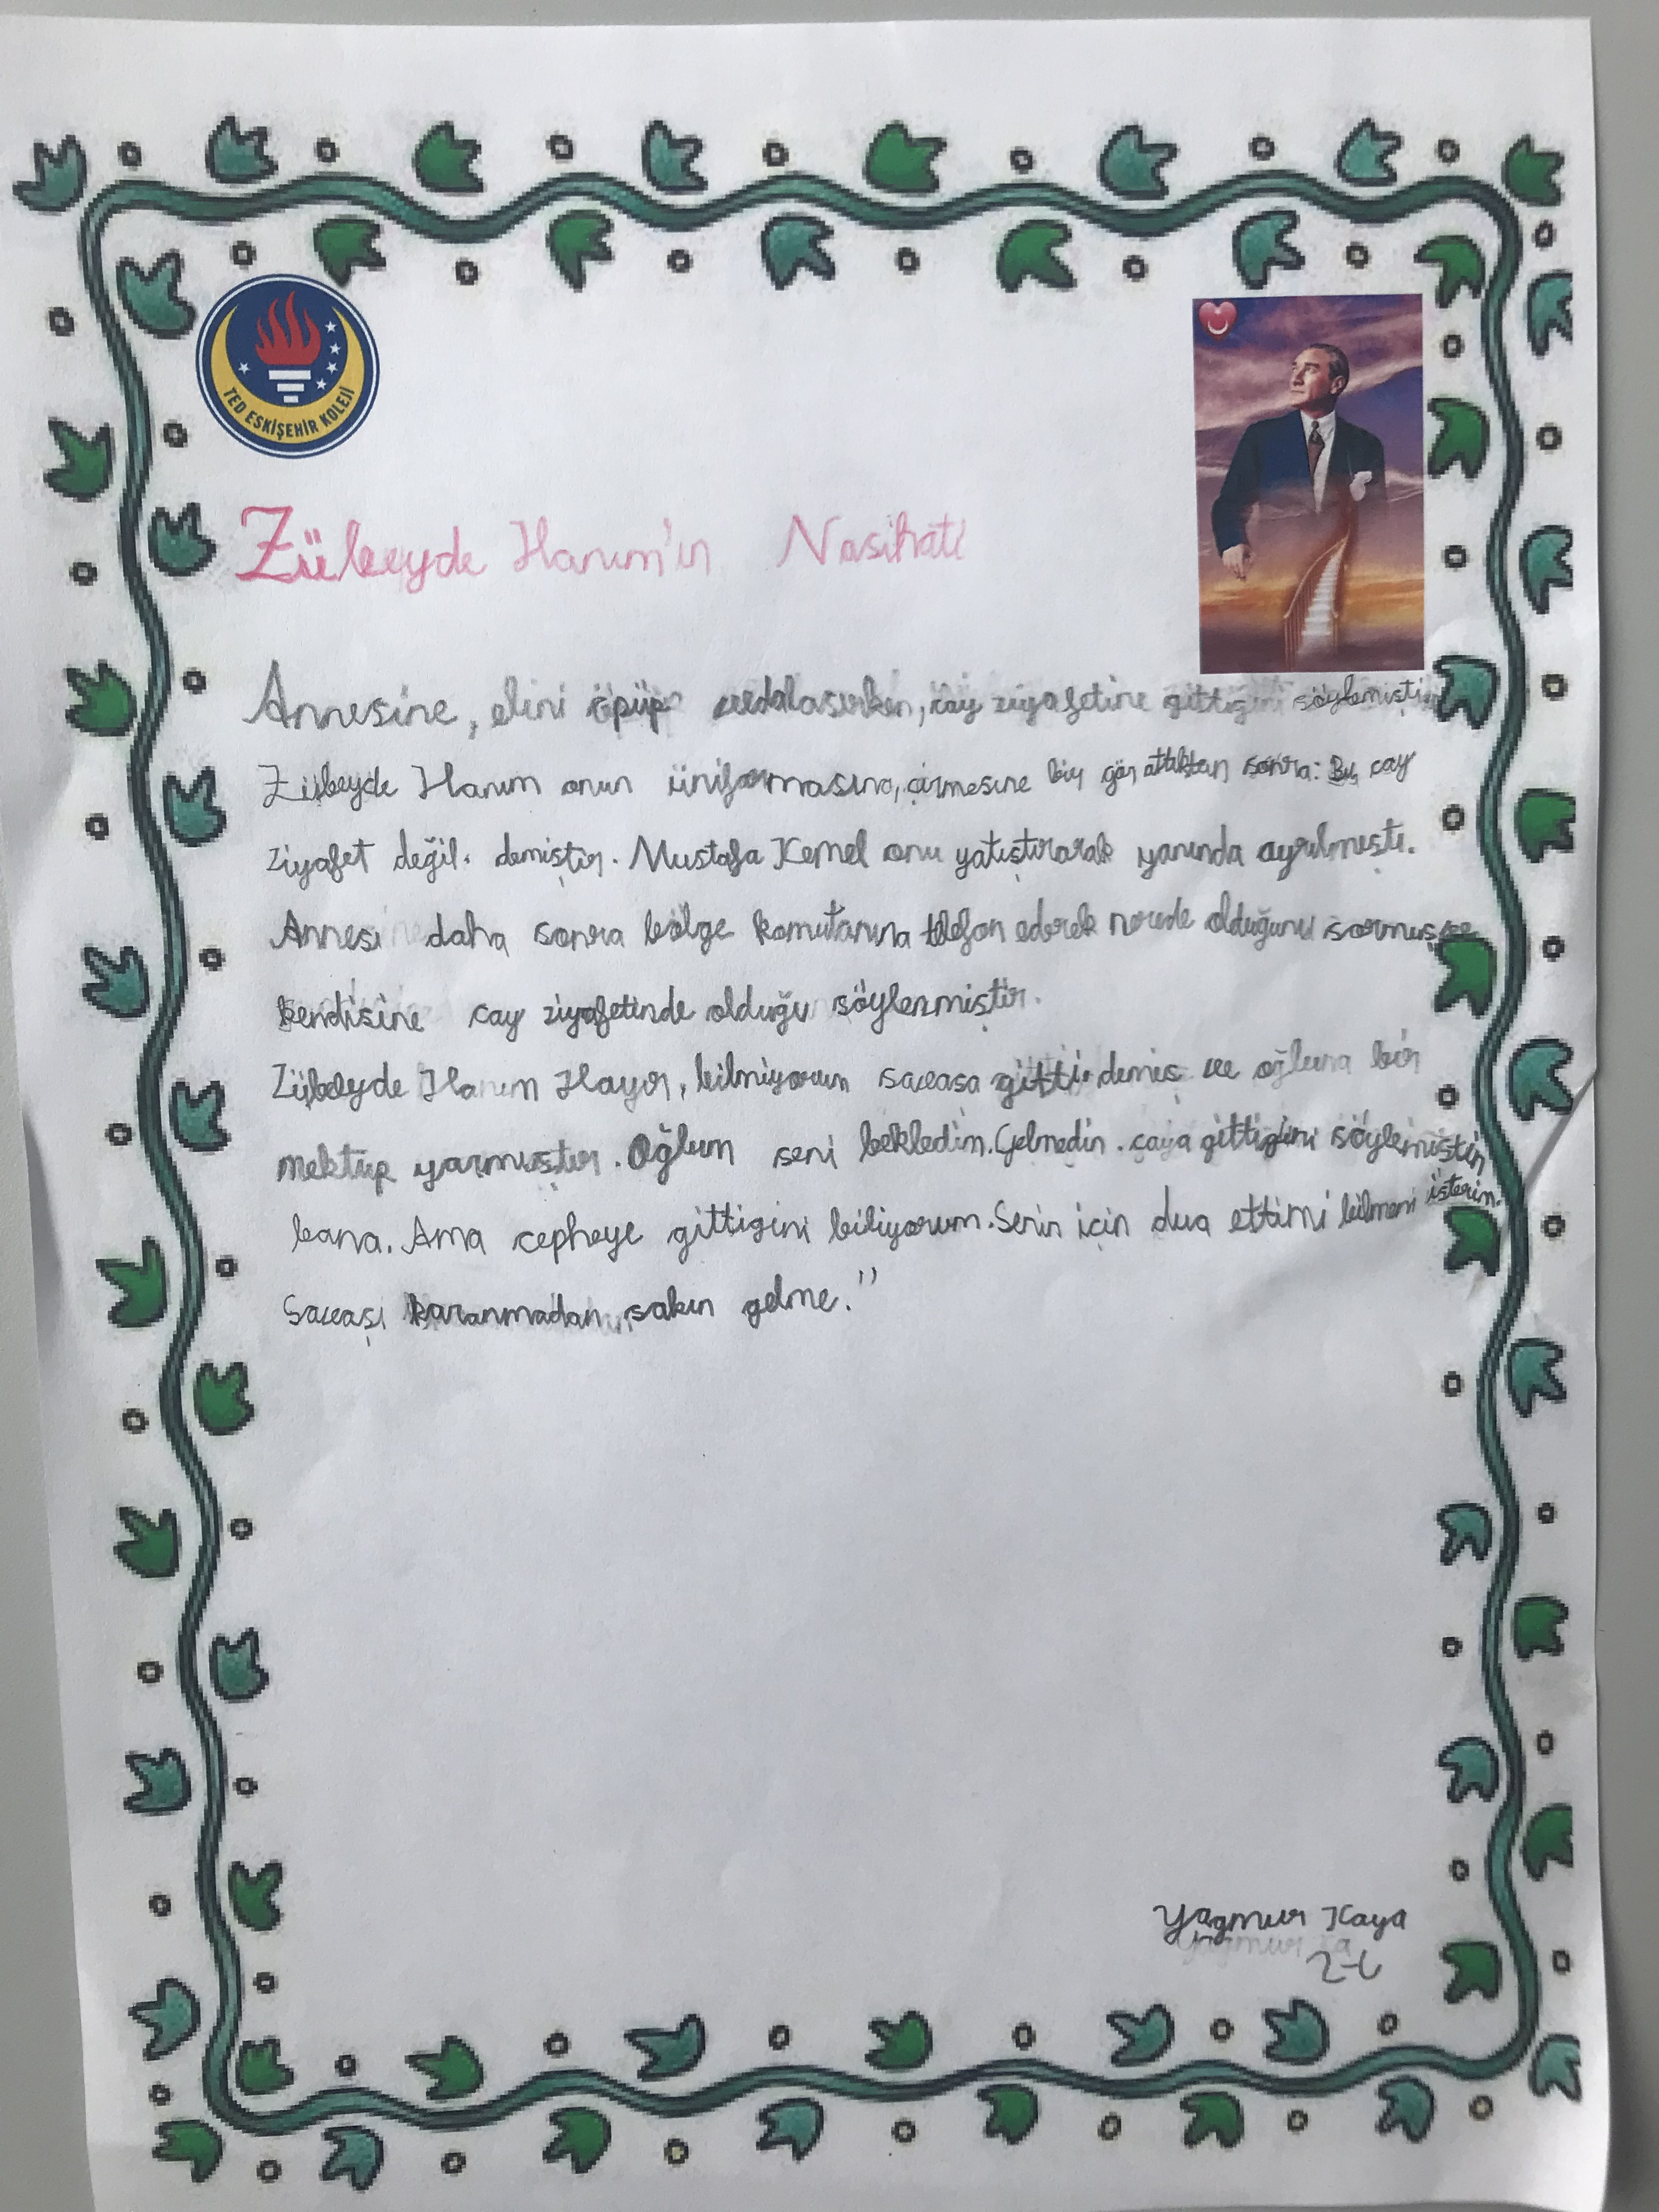 TED ESKİŞEHİR KOLEJİ
Zübeyde Hanım'ın Nasihati
Annesine, elini öpüp vedalaşırken, çay ziyafetine gittiğini söylemişti
Zübeyde Hanım onun üniformasına, çizmesine bir göz attıktan sonra: Bu çay
ziyafet değil. demiştir. Mustafa Kemal onu yatıştırarak yanında ayrılmıştı.
Annesi daha sonra bölge komutanına telefon ederek nerede olduğunu sormuş ve
kendisine çay ziyafetinde olduğu söylenmiştir.
Zübeyde Hanım Hayır, bilmiyorum savaşa gitti. demiş ve oğluna bir
mektup yazmıştır. Oğlum seni bekledim. Gelmedin. çaya gittiğini söylemiştin
bana. Ama cepheye gittigini biliyorum. Senin için dua ettimi bilmeni isterim.
Savaşı kazanmadan, sakın gelme."
Yagmur Kaya